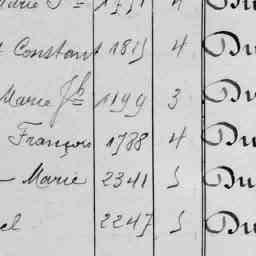 Marie
Constant 1813 4 Du
Marie Jph 1199 3 Du
François 1788 4 Du
— Marie 2341 5 Du
el 2247 5 Du